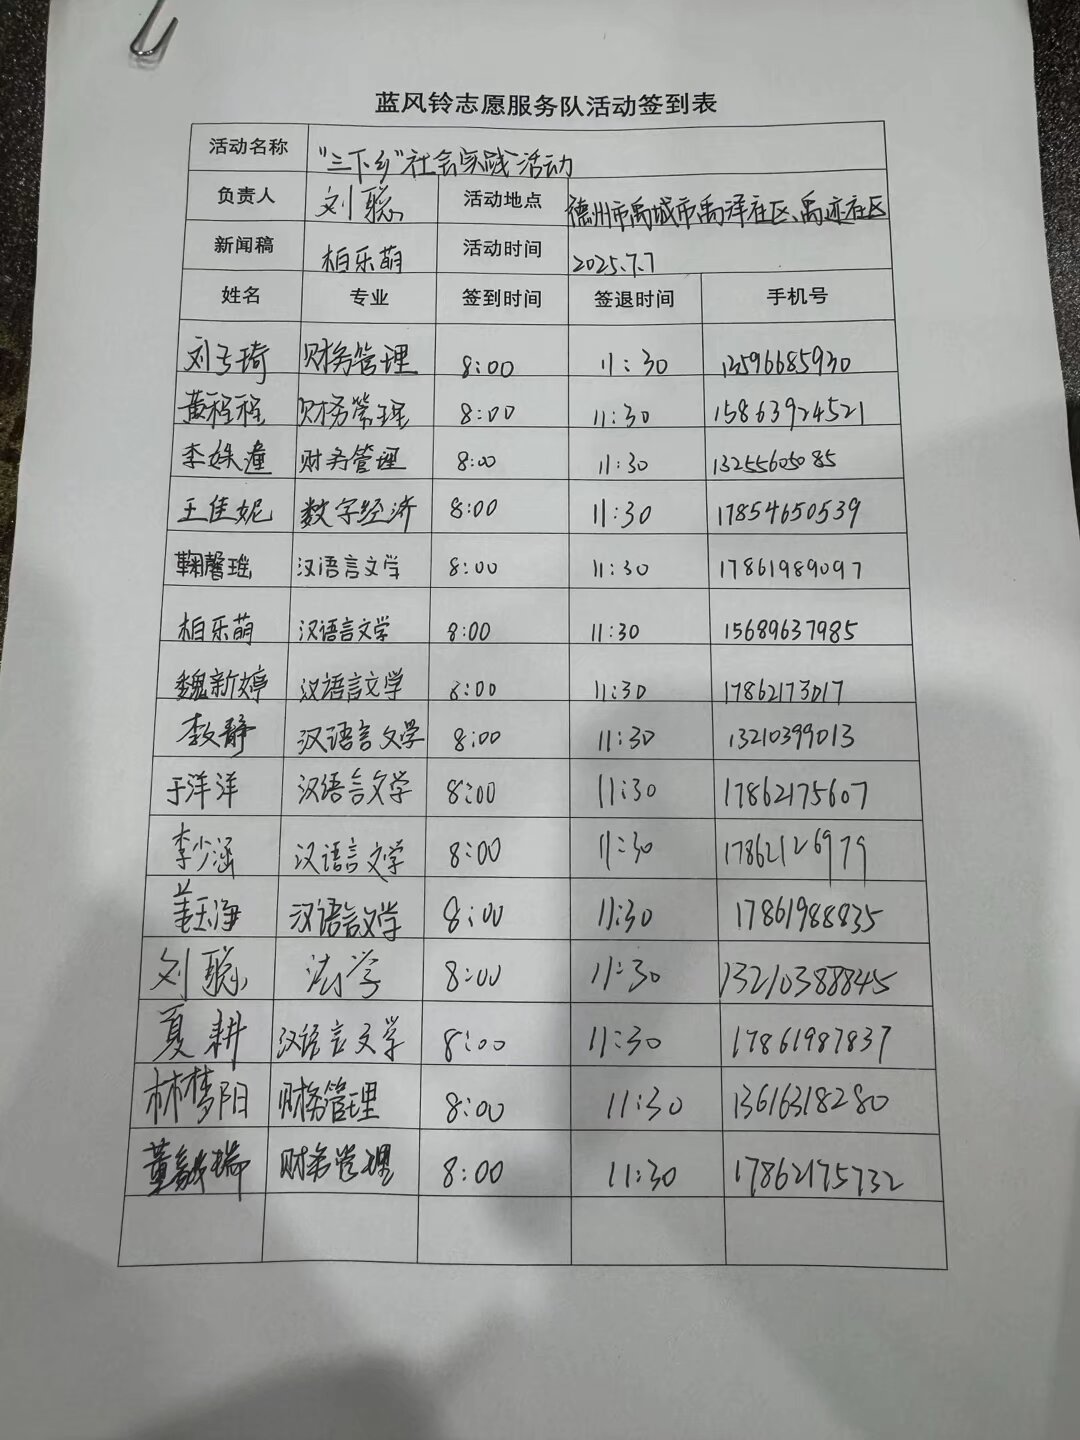 蓝风铃志愿服务队活动签到表
活动名称 "三下乡"社会实践活动
负责人 刘聪 活动地点 德州市禹城市禹泽社区、禹迹社区
新闻稿 柏乐萌 活动时间 2025.7.7
姓名 专业 签到时间 签退时间 手机号
刘于琦 财务管理 8:00 11:30 13596685930
黄程程 财务管理 8:00 11:30 15863924521
李姝潼 财务管理 8:00 11:30 13255605085
王佳妮 数字经济 8:00 11:30 17854650539
鞠馨瑶 汉语言文学 8:00 11:30 17861989097
柏乐萌 汉语言文学 8:00 11:30 15689637985
魏新婷 汉语言文学 8:00 11:30 17862173017
李文静 汉语言文学 8:00 11:30 13210399013
于洋洋 汉语言文学 8:00 11:30 17862175607
李少涵 汉语言文学 8:00 11:30 17862126979
姜玉海 汉语言文学 8:00 11:30 17861988835
刘聪 法学 8:00 11:30 13210388845
夏耕 汉语言文学 8:00 11:30 17861987837
林梦阳 财务管理 8:00 11:30 13616318280
董瑞 财务管理 8:00 11:30 17862175732